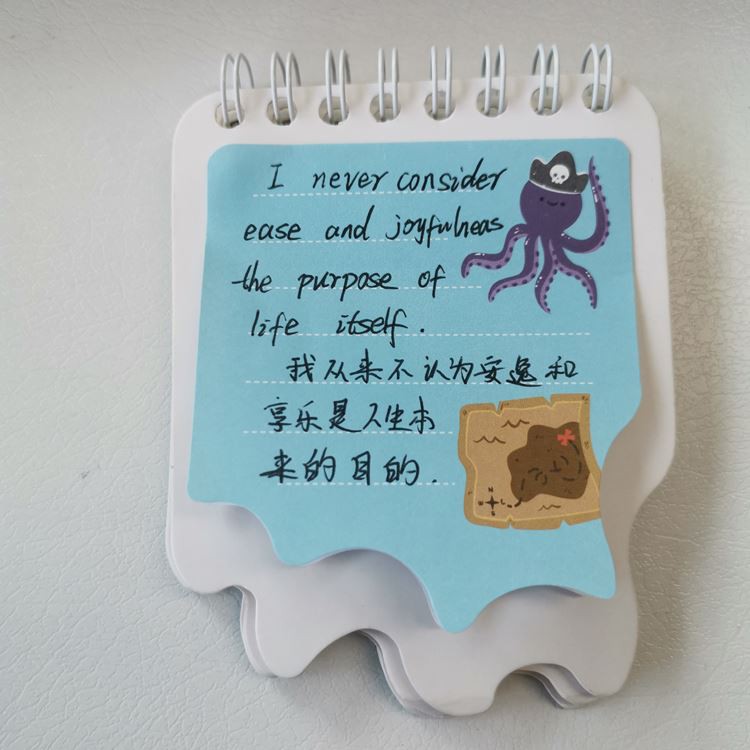 I never consider
ease and joyfulneas
the purpose of
life itself.
我从来不认为安逸和
享乐是人生本
来的目的.
N